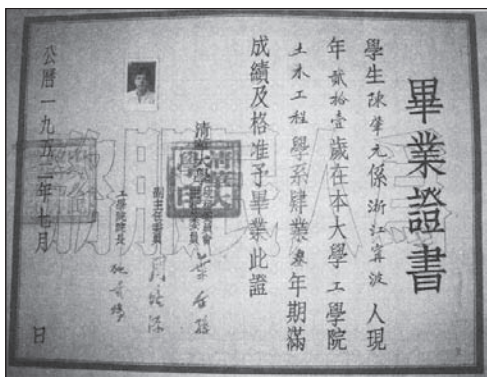 畢業證書
學生陳肇元係浙江寧波人現
年貳拾壹歲在本大學工學院
土木工程學系肄業叁年期滿
成績及格准予畢業此證
清華大學校務委員會
主任委員 葉企孫
副主任委員 周培源
工學院院長 施嘉煬
清華大學印
公曆一九五二年七月 日